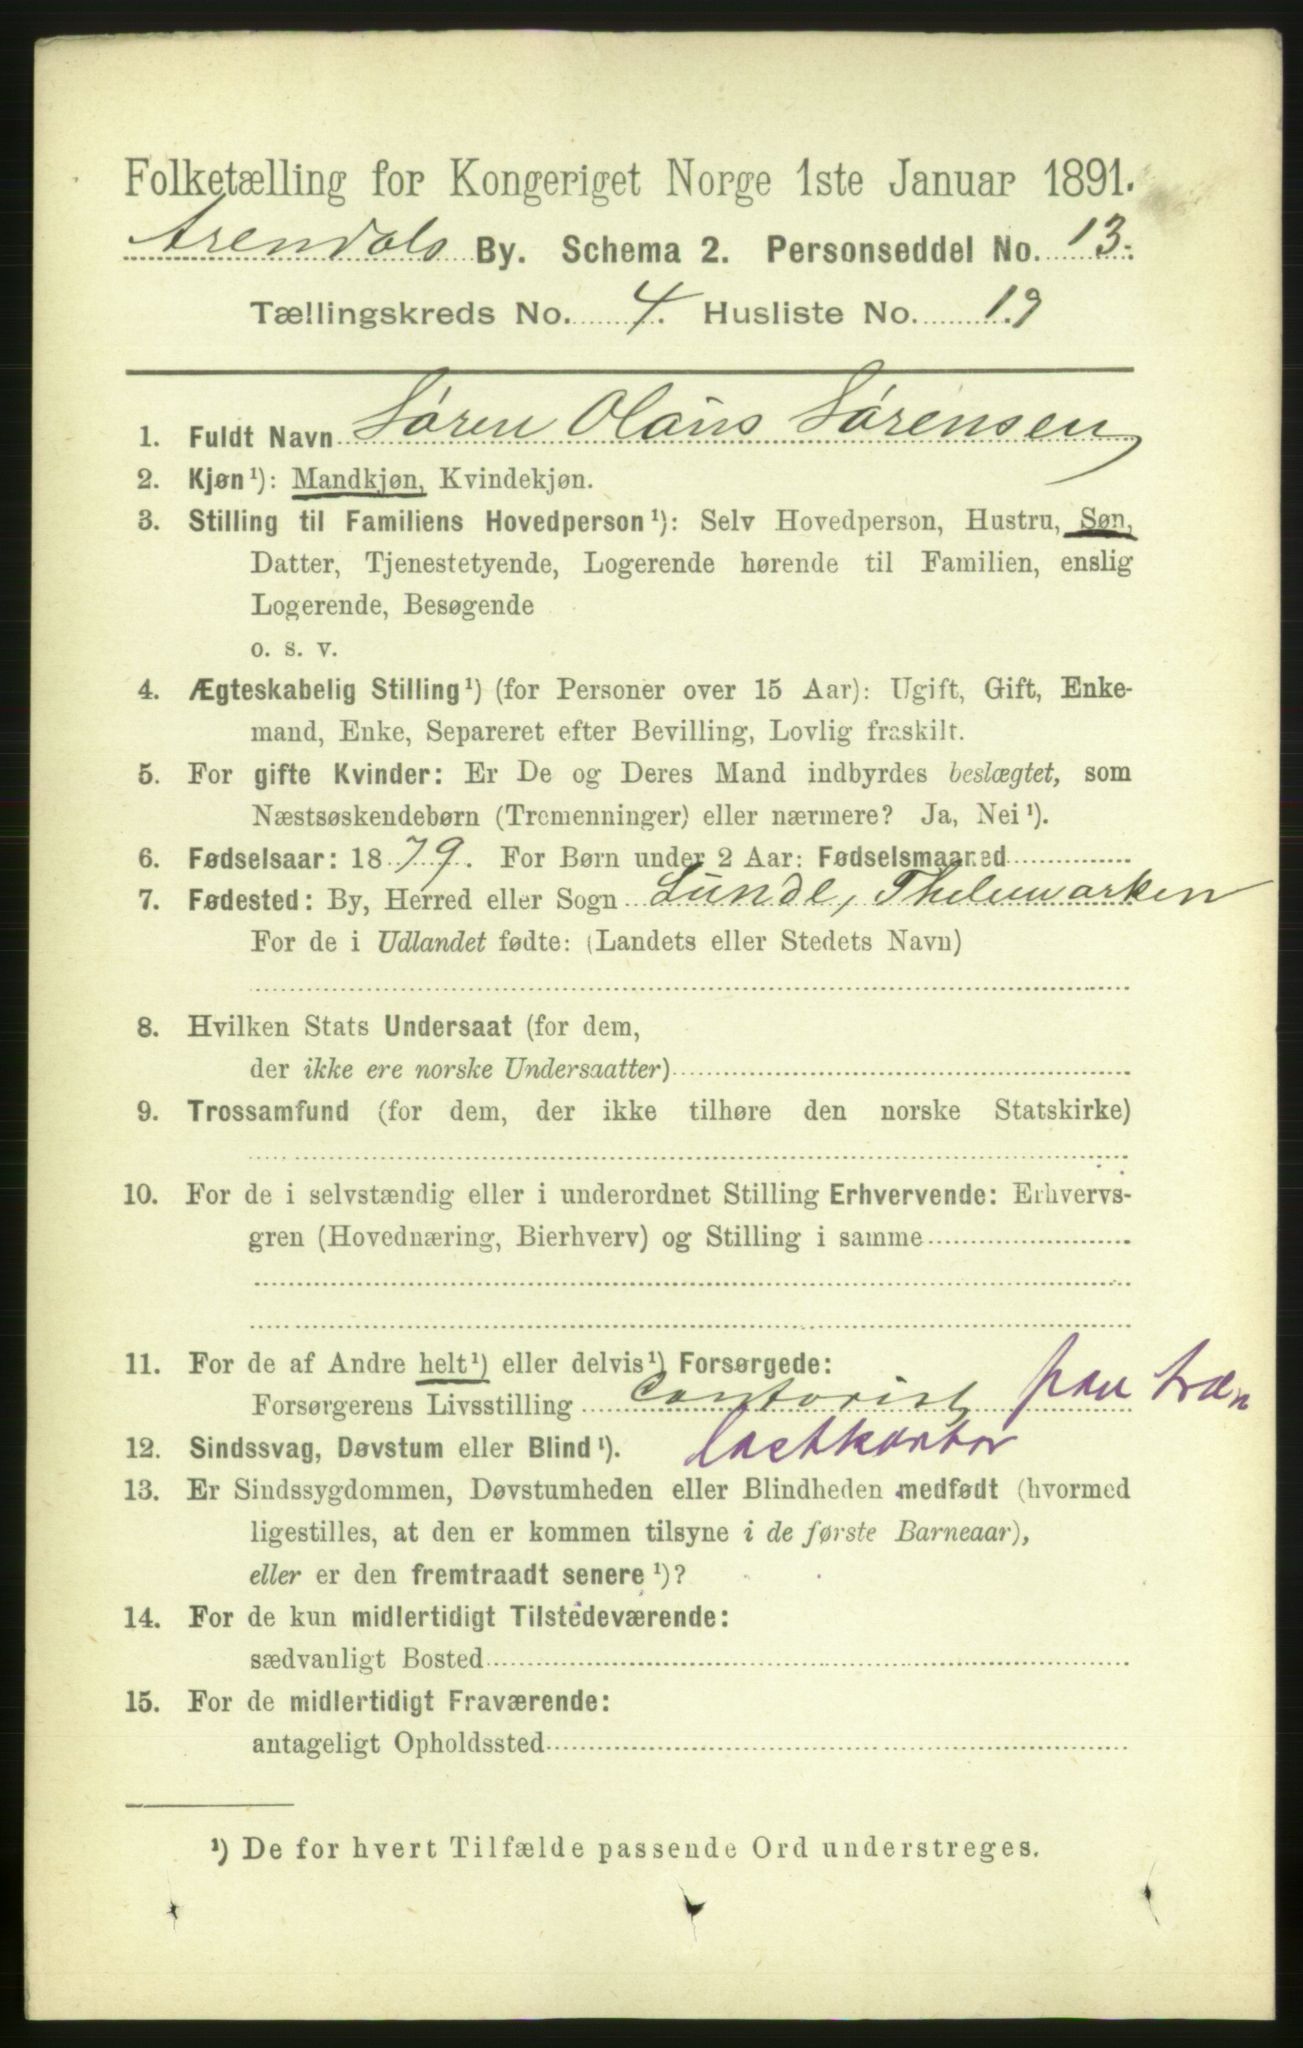 Folketælling for Kongeriget Norge 1ste Januar 1891.
Arendals By. Schema 2. Personseddel No. 13.
Tællingskreds No. 4. Husliste No. 19
1. Fuldt Navn Søren Olaus Sørensen
2. Kjøn¹): Mandkjøn, Kvindekjøn.
3. Stilling til Familiens Hovedperson¹): Selv Hovedperson, Hustru, Søn,
Datter, Tjenestetyende, Logerende hørende til Familien, enslig
Logerende, Besøgende
o. s. v.
4. Ægteskabelig Stilling¹) (for Personer over 15 Aar): Ugift, Gift, Enke-
mand, Enke, Separeret efter Bevilling, Lovlig fraskilt.
5. For gifte Kvinder: Er De og Deres Mand indbyrdes beslægtet, som
Næstsøskendebørn (Tremenninger) eller nærmere? Ja, Nei¹).
6. Fødselsaar: 1879. For Børn under 2 Aar: Fødselsmaaned
7. Fødested: By, Herred eller Sogn Lunde, Thelemarken
For de i Udlandet fødte: (Landets eller Stedets Navn)
8. Hvilken Stats Undersaat (for dem,
der ikke ere norske Undersaatter)
9. Trossamfund (for dem, der ikke tilhøre den norske Statskirke)
10. For de i selvstændig eller i underordnet Stilling Erhvervende: Erhvervs-
gren (Hovednæring, Bierhverv) og Stilling i samme
11. For de af Andre helt¹) eller delvis¹) Forsørgede:
Forsørgerens Livsstilling Contorist paa træ
12. Sindssvag, Døvstum eller Blind¹). lastkontor
13. Er Sindssygdommen, Døvstumheden eller Blindheden medfødt (hvormed
ligestilles, at den er kommen tilsyne i de første Barneaar),
eller er den fremtraadt senere¹)?
14. For de kun midlertidigt Tilstedeværende:
sædvanligt Bosted
15. For de midlertidigt Fraværende:
antageligt Opholdssted
¹) De for hvert Tilfælde passende Ord understreges.